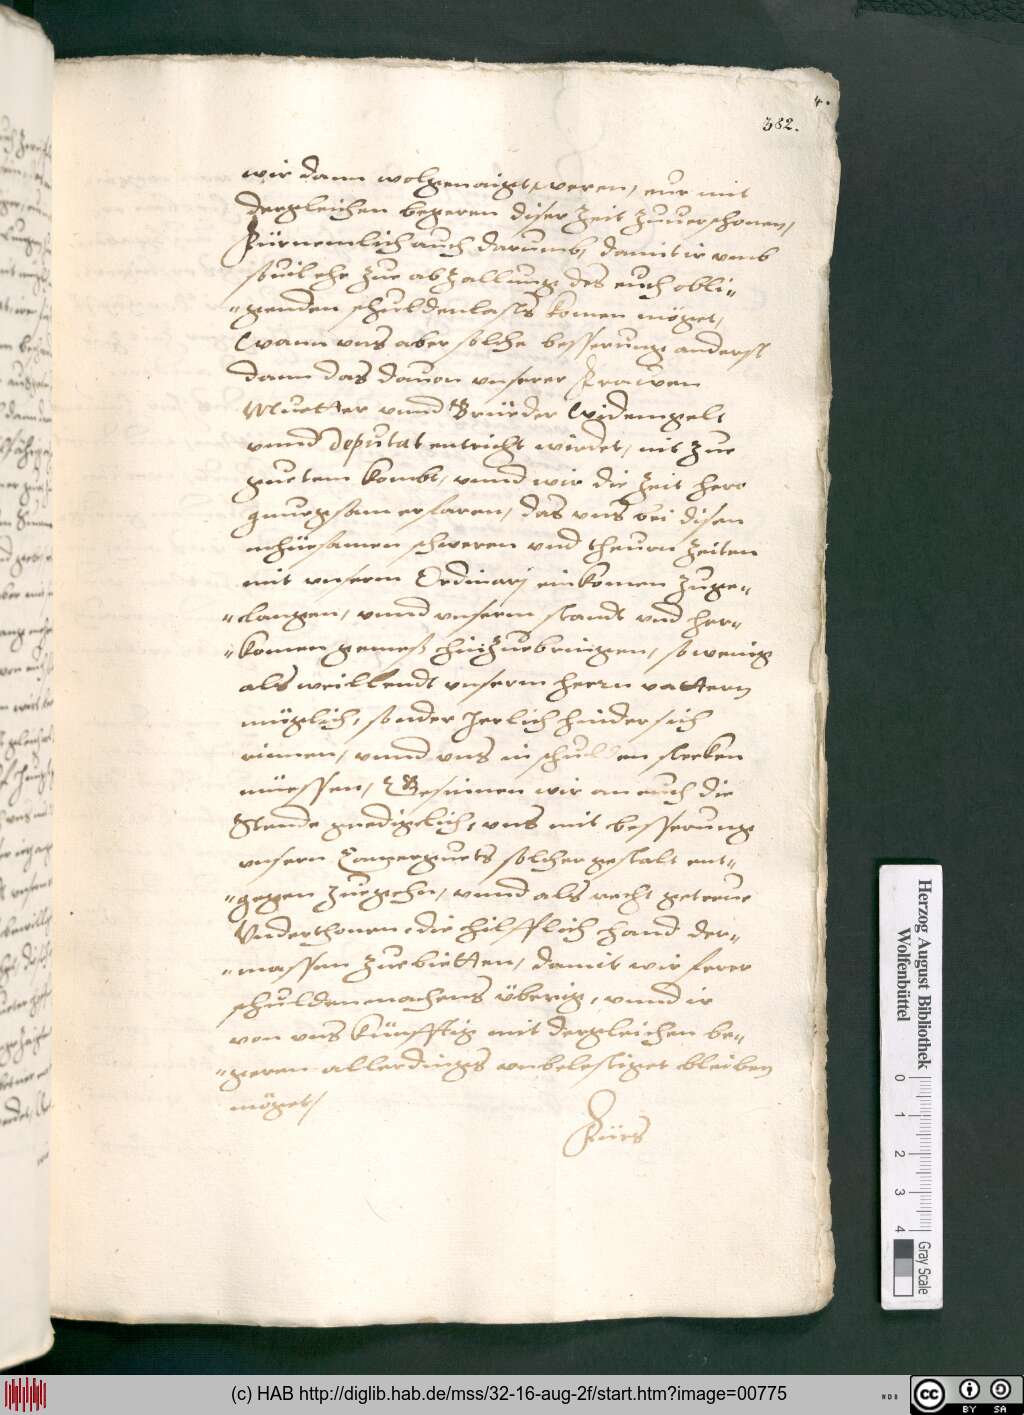 4.
382.
wir dann wolgenaigt weren, eur mit
dergleichen begeren diser Zeit zuuerschonen,
Fürnemlich auch darumb, damit ir vmb
souil ehe zue abzallung des euch obli-
-genden schuldenlasts komen möget,
Wann vns aber solche besserung anderst
dann das dauon vnserer Frawen
Muetter vnnd Brüeder Widemgelt
vnnd deputat entricht wirdet, nit zue
guetem kombt, vnnd wir die Zeit hero
gnuegsam erfaren, das vns bei disen
mhüesamen schweren vnd theurn Zeiten
mit vnserm Ordinarj einkomen zuge-
-langen, vnnd vnserm standt vnd her-
-komen gemeß hinzuebringen, so wenig
als weillendt vnserm herrn vattern
müglich, sonder Jerlich hindersich
rinnen, vnnd vns in schulden stecken
müessen, Gesinnen wir an euch die
Stende gnedigclich, vns mit besserung
vnsern Camerguets solcher gestalt ent-
-gegen zuegehn, vnnd als recht getreue
Vnderthonen, die hilfflich hand der-
-massen zuebietten, damit wir ferer
schuldenmachens überig, vnnd ir
von vns künfftig mit dergleichen be-
-geren allerdings vnbelestiget bleiben
möget/
Fürs
Herzog August Bibliothek
Wolfenbüttel
0 1 2 3 4
Gray Scale
(c) HAB http://diglib.hab.de/mss/32-16-aug-2f/start.htm?image=00775
cc BY SA